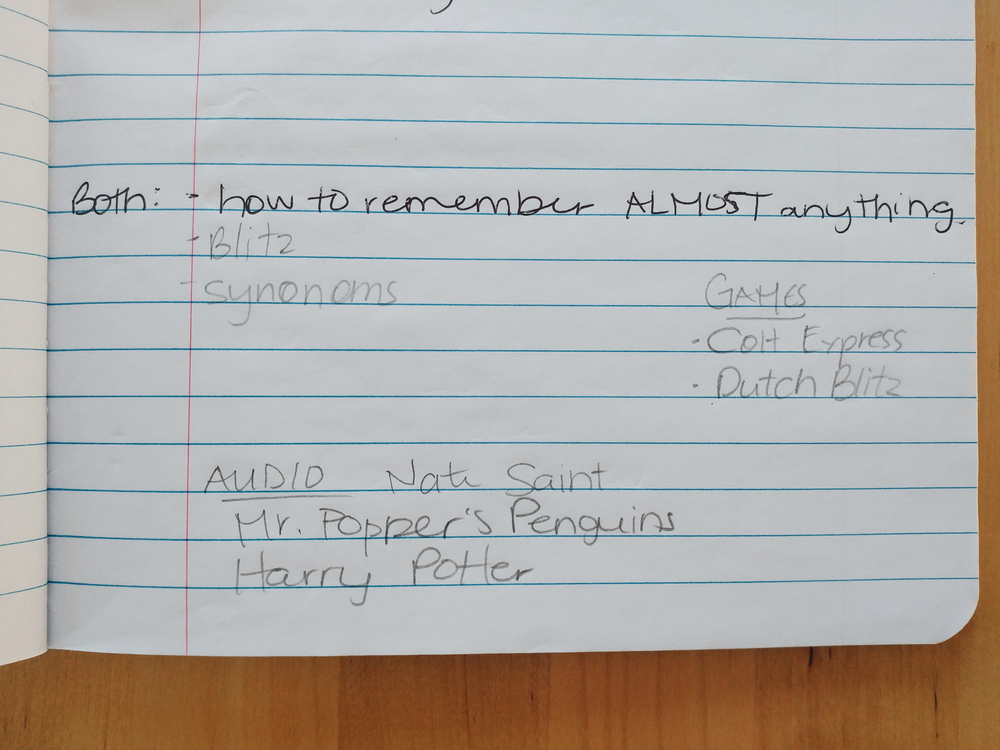 Both: - how to remember ALMOST anything.
- Blitz
- synonoms
GAMES
· Colt Express
· Dutch Blitz
AUDIO Nate Saint
Mr. Popper's Penguins
Harry Potter